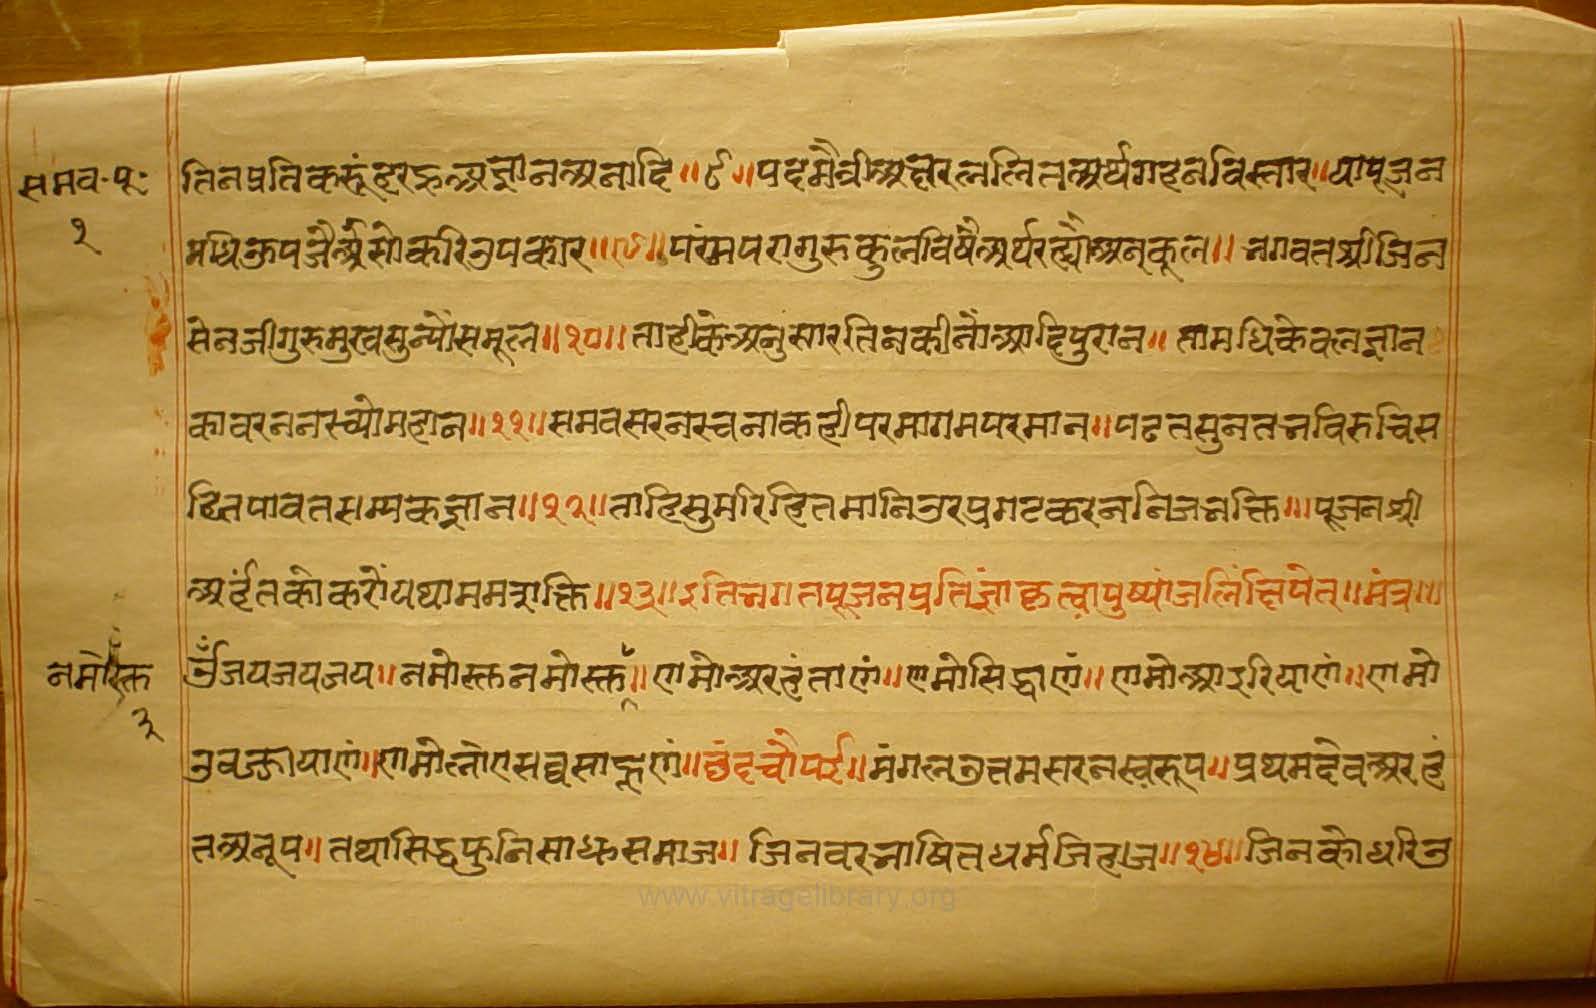 समव॰पू॰
१
तिनप्रतिकरूंहरहूअज्ञानअनादि॥८॥पदमैत्रीअक्षरललितअर्थगहनविस्तार॥यापूजन
मधिऊपजैअैसोकरिउपकार॥९॥परंमपरागुरुकुलविषैअर्थरह्यौअनुकूल॥भगवतश्रीजिन
सेनजीगुरुमुखसुन्यौसमूल॥१०॥ताहीकेअनुसारतिनकीनौंआदिपुरान॥तामधिकेवलज्ञान
कावरननरच्योमहान॥११॥समवसरनरचनाकहीपरमागमपरमान॥पढतसुनतभविरुचिस
हितपावतसम्यकज्ञान॥१२॥ताहिसुमरिहितमानिउरप्रगटकरननिजभक्ति॥पूजनश्री
अर्हंतकोकरोंयथाममशक्ति॥१३॥इतिभगतपूजनप्रतिज्ञांकृत्वापुष्पांजलिंक्षिपेत्॥मंत्र॥
नमोस्तु
३
उँजयजयजय॥नमोस्तुनमोस्तु॥णमोअरहंताणं॥णमोसिद्धाणं॥णमोआइरियाणं॥णमो
उवज्झायाणं॥णमोलोएसव्वसाहूणं॥छंदचौपई॥मंगलउत्तमसरनस्वरूप॥प्रथमदेवअरहं
तअनूप॥तथासिद्धफुनिसाधुसमाज॥जिनवरभाषितधर्मजिहाज॥१४॥जिनकोधरिउ
www.vitragelibrary.org